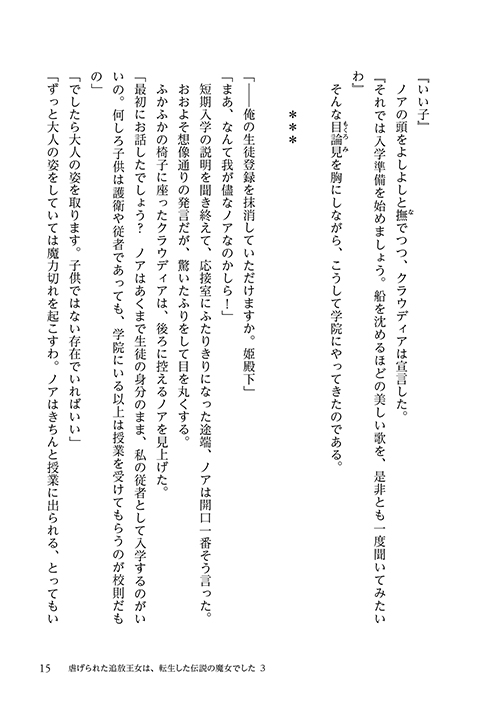 『いい子』
ノアの頭をよしよしと撫でつつ、クラウディアは宣言した。
『それでは入学準備を始めましょう。船を沈めるほどの美しい歌を、是非とも一度聞いてみたい
わ』
そんな目論見を胸にしながら、こうして学院にやってきたのである。
＊＊＊
「――俺の生徒登録を抹消していただけますか。姫殿下」
「まあ、なんて我が儘なノアなのかしら！」
短期入学の説明を聞き終えて、応接室にふたりきりになった途端、ノアは開口一番そう言った。
おおよそ想像通りの発言だが、驚いたふりをして目を丸くする。
ふかふかの椅子に座ったクラウディアは、後ろに控えるノアを見上げた。
「最初にお話したでしょう？　ノアはあくまで生徒の身分のまま、私の従者として入学するのがい
いの。何しろ子供は護衛や従者であっても、学院にいる以上は授業を受けてもらうのが校則だも
の」
「でしたら大人の姿を取ります。子供ではない存在でいればいい」
「ずっと大人の姿をしていては魔力切れを起こすわ。ノアはきちんと授業に出られる、とってもい
15 虐げられた追放王女は、転生した伝説の魔女でした 3